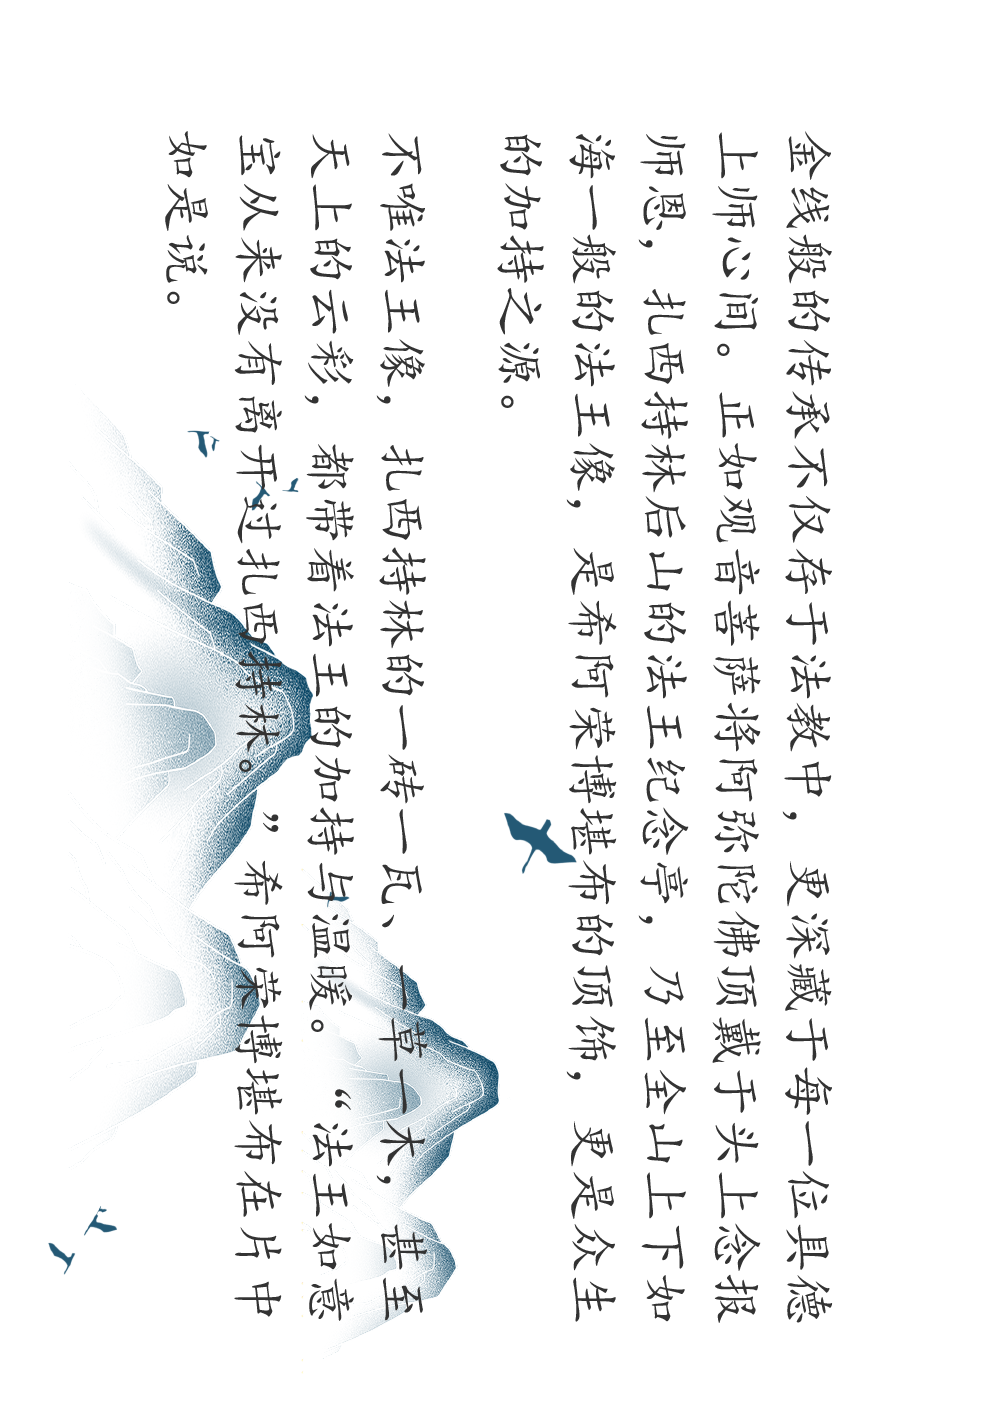 金线般的传承不仅存于法教中，更深藏于每一位具德
上师心间。正如观音菩萨将阿弥陀佛顶戴于头上念报
师恩，扎西持林后山的法王纪念亭，乃至全山上下如
海一般的法王像，是希阿荣博堪布的顶饰，更是众生
的加持之源。
不唯法王像，扎西持林的一砖一瓦、一草一木，甚至
天上的云彩，都带着法王的加持与温暖。“法王如意
宝从来没有离开过扎西持林。”希阿荣博堪布在片中
如是说。